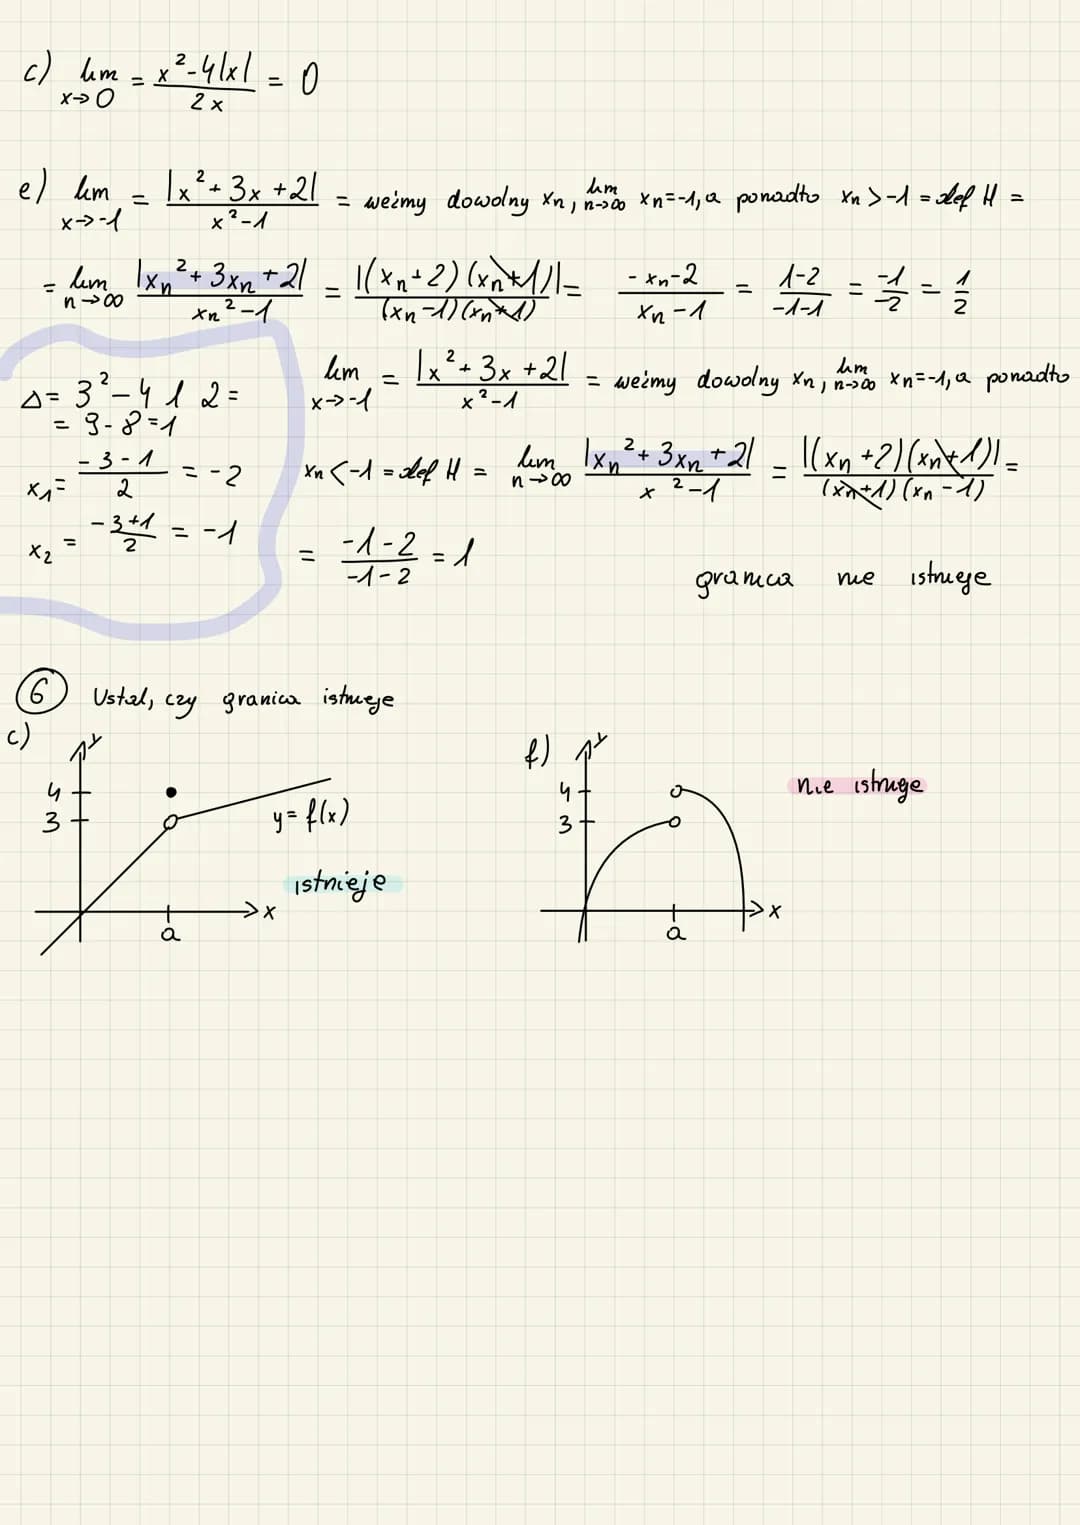 c) lim x→0 = x²-4|x| / 2x = 0
e) lim x→-1 = |x²+3x+2| / x²-1 = weźmy dowolny xn, lim n→∞ xn=-1, a ponadto xn>-1 = def H =
= lim n→∞ |xn²+3xn+2| / xn²-1 = |(xn+2)(xn+1)| / (xn-1)(xn+1) = -xn-2 / xn-1 = 1-2 / -1-1 = -1 / -2 = 1/2
Δ= 3²-4 1 2=
= 9-8=1
x1= -3-1 / 2 = -2
x2 = -3+1 / 2 = -1
lim x→-1 = |x²+3x+2| / x²-1 = weźmy dowolny xn, lim n→∞ xn=-1, a ponadto
xn<-1 = def H = lim n→∞ |xn²+3xn+2| / x²-1 = |(xn+2)(xn+1)| / (xn+1)(xn-1) =
= -1-2 / -1-2 = 1
granica nie istnieje
6 Ustal, czy granica istnieje
c)
y
4
3
y=f(x)
istnieje
x
a
f)
y
4
3
nie istnieje
x
a